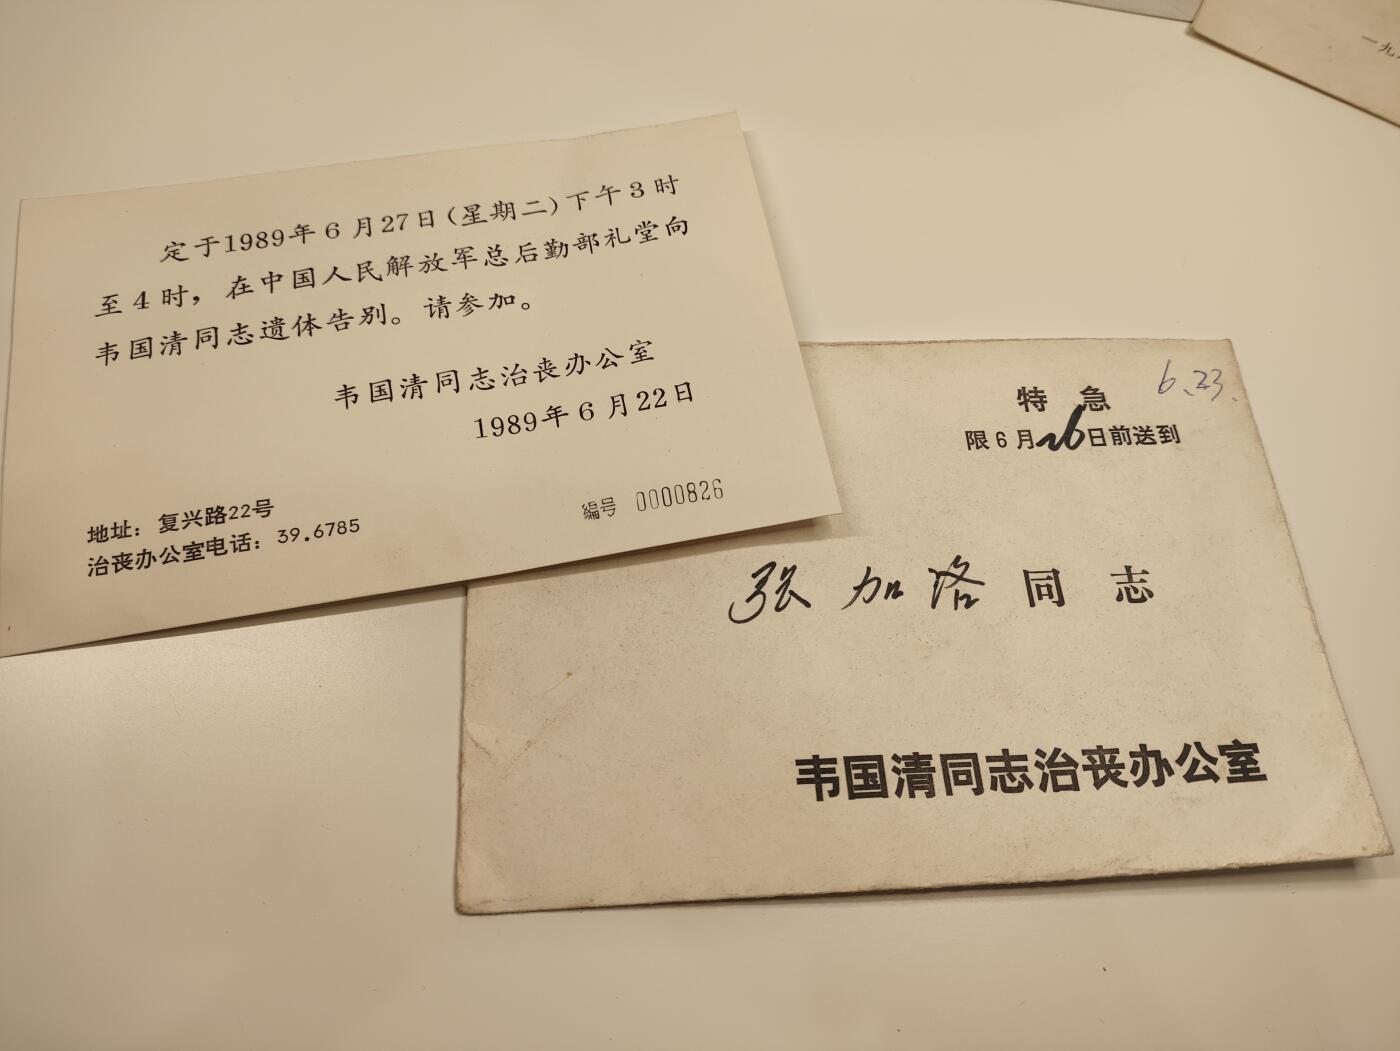 定于1989年6月27日(星期二)下午3时
至4时，在中国人民解放军总后勤部礼堂向
韦国清同志遗体告别。请参加。
韦国清同志治丧办公室
1989年6月22日
地址：复兴路22号
治丧办公室电话：39.6785
编号 0000826
6.23.
特急
限6月26日前送到
张加洛同志
韦国清同志治丧办公室
一九